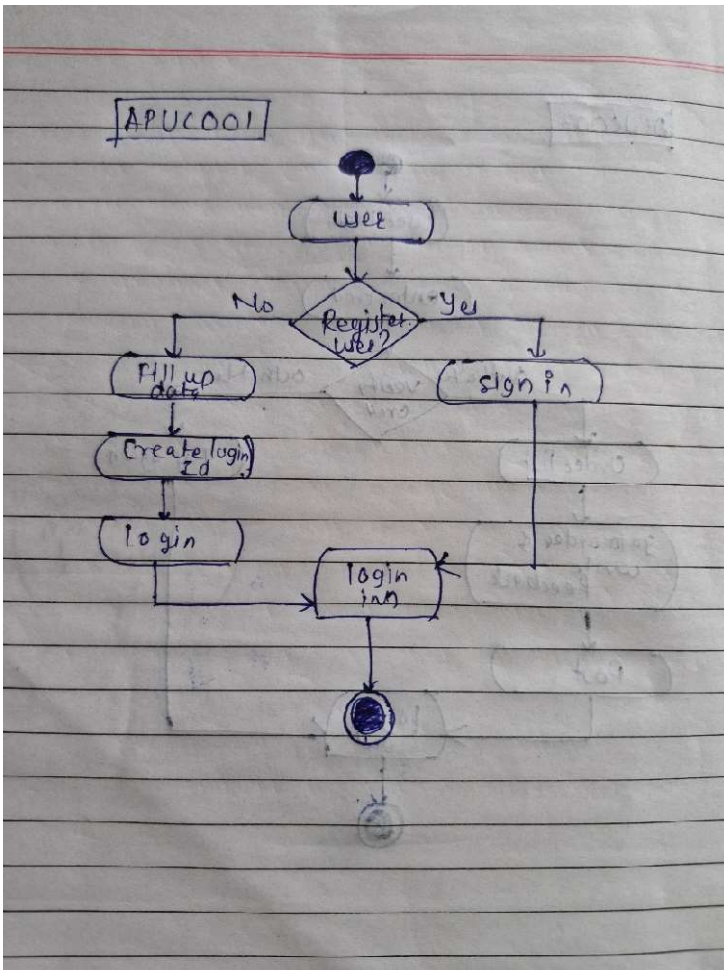 APUC001
User
No
Yes
Register
User?
Fill up
data
sign in
Create login
Id
login
login
inn